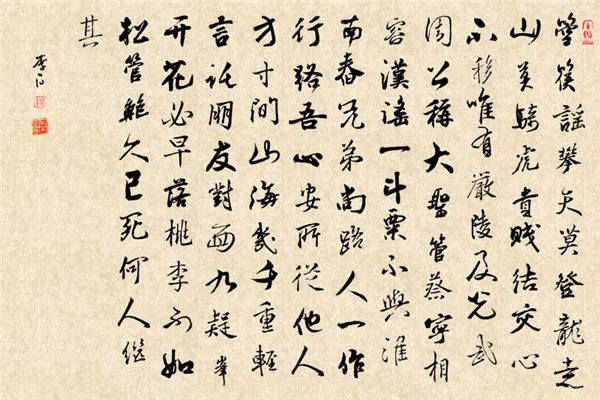 箜篌謠攀天莫登龍走
山莫騎虎貴賤結交心
不移唯有厳陵及光武
周公稱大聖管蔡寧相
容漢謠一斗粟不與淮
南舂兄弟尚路人一作
行路吾心安所從他人
方寸間山海幾千重輕
言託朋友對面九疑峯
开花必早落桃李不如
松管鮑久已死何人繼
其
李白